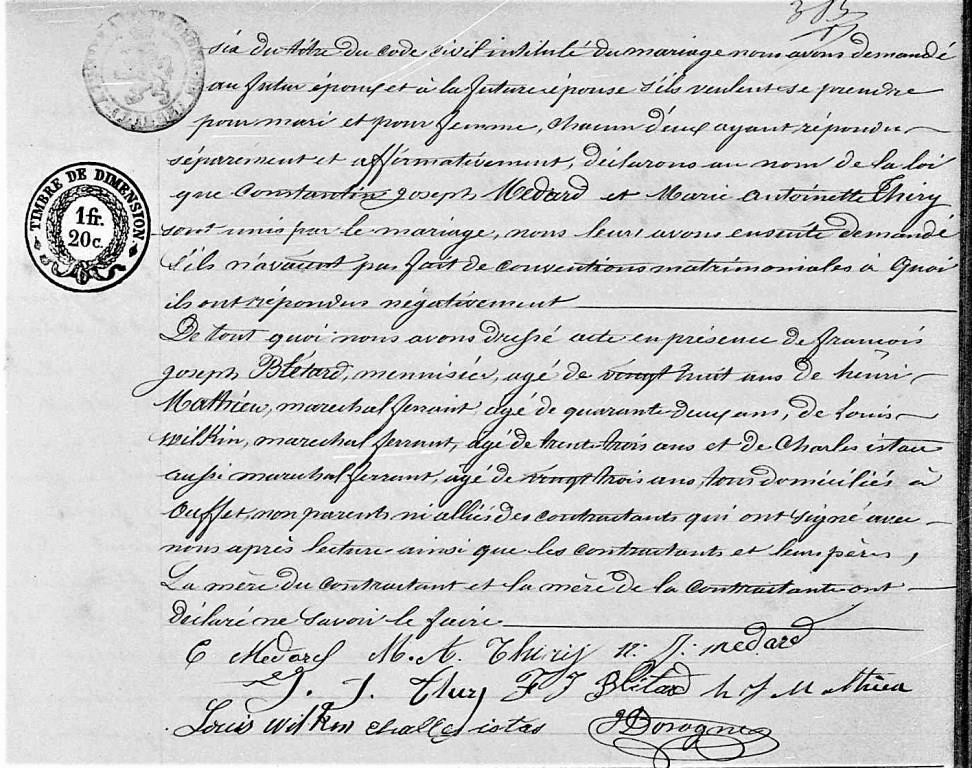 383
six du titre du code civil intitulé du mariage nous avons demandé
au futur époux et à la future épouse s'ils veulent se prendre
pour mari et pour femme, chacun d'eux ayant répondu
séparément et affirmativement, déclarons au nom de la loi
TIMBRE DE DIMENSION
1 fr.
20 c.
que Constantin Joseph Medard et Marie Antoinette Thiry
sont unis par le mariage, nous leur avons ensuite demandé
s'ils n'avaient pas fait de conventions matrimoniales à quoi
ils ont répondus négativement
De tout quoi nous avons dressé acte en présence de françois
joseph Blétard, mennisier, agé de vingt huit ans de henri
Mathieu, marechal ferrant, agé de quarante deux ans, de Louis
Wilkin, marechal ferrant, agé de trente trois ans et de Charles istas
aussi marechal ferrant, agé de vingt trois ans, tous domiciliés à
Ouffet, non parents ni alliés des contractants qui ont signé avec
nous après lecture ainsi que les contractants et leurs pères,
La mère du contractant et la mère de la contractante ont
déclaré ne savoir le faire
C Medard M. A. Thiry n. J. medard
J. J. Thiry F J Blétard h j Mathieu
Louis Wilkin challes istas